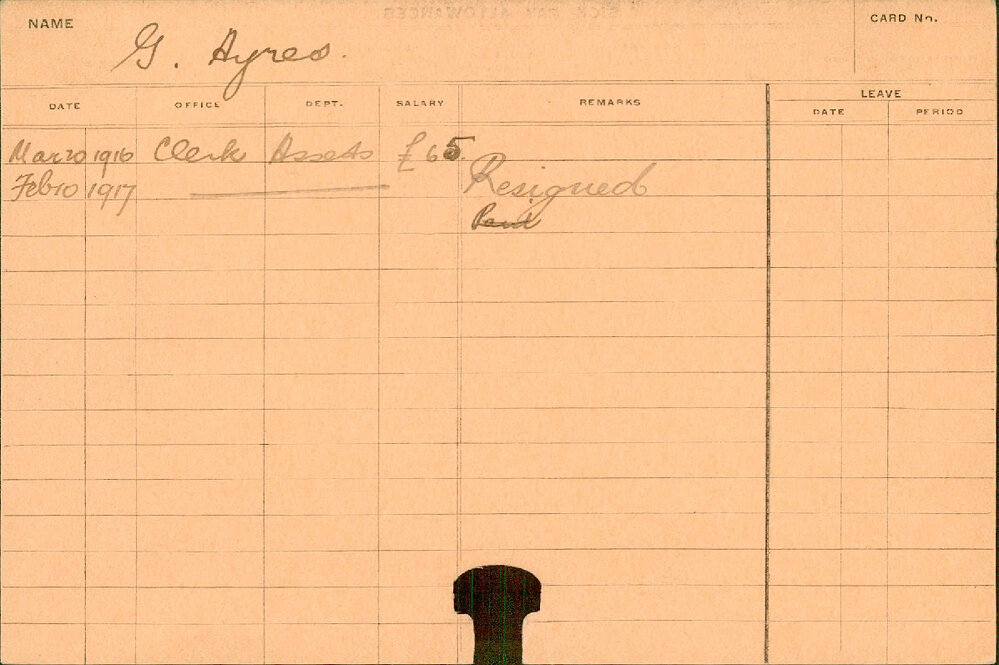 NAME
G. Ayres.
CARD No.
DATE OFFICE DEPT. SALARY REMARKS LEAVE
DATE PERIOD
Mar 20 1916 Clerk Assets £65.
Feb 10 1917 Resigned
Paid